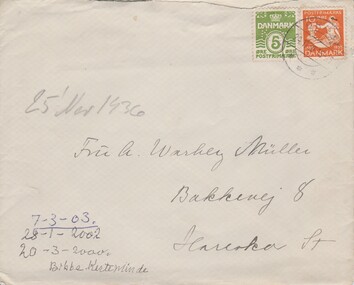 DANMARK
5
POSTFRIMÆRKE
DANMARK
25' Nov 1936
Frú A. Warberg Müller
Bakkevej 8
Hareskov St
7-3-03.
28-1-2002
20-3-2000.
Bibbe Kerteminde